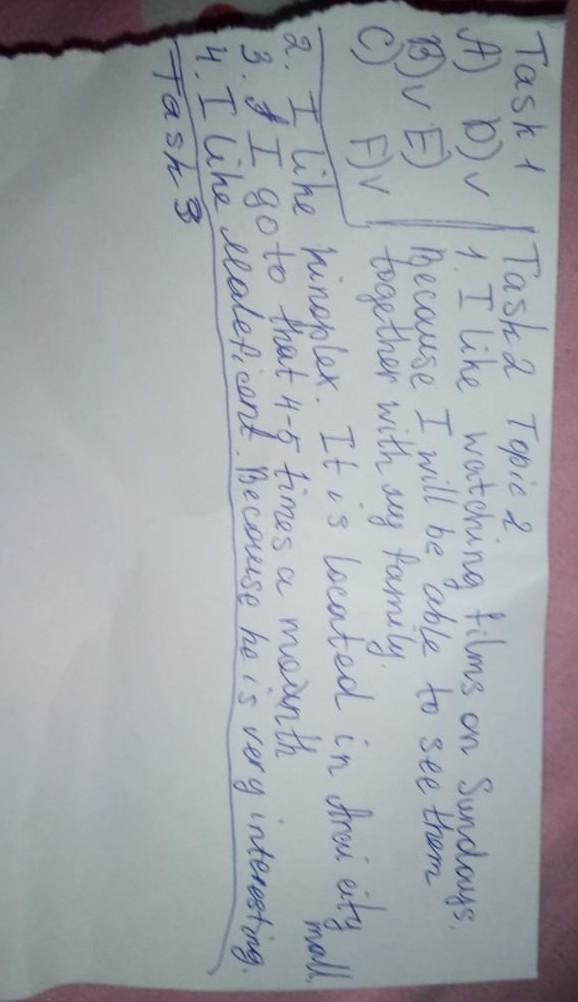 Task 1
A) D) v
B) v E)
C) F) v
Task 2 Topic 2
1. I like watching films on Sundays.
Because I will be able to see them
together with my family.
2. I like kinoplex. It is located in city mall.
3. I go to that 4-5 times a moanth
4. I like Maleficent. Because he is very interesting.
Task 3